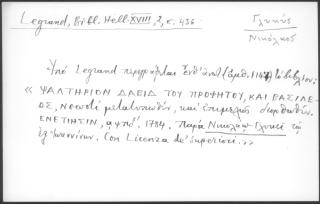 Legrand, Bibl. Hell. XVIII, 2, σ. 436
Γλυκύς
Νικόλαος
Ὑπὸ Legrand περιγράφεται ἐνθ' ἀνωτ. (ἀριθμ. ) τὸ βιβλίον:
« ΨΑΛΤΗΡΙΟΝ ΔΑΒΙΔ ΤΟΥ ΠΡΟΦΗΤΟΥ, ΚΑΙ ΒΑΣΙΛΕ-
ΟΣ, Νεωστὶ μετατυπωθὲν, καὶ ἐπιμελῶς διορθωθέν.
ΕΝΕΤΙΗΣΙΝ, 1784. Παρὰ Νικολάῳ Γλυκεῖ τῷ
ἐξ Ἰωαννίνων. Con Licenza de' superiori. »